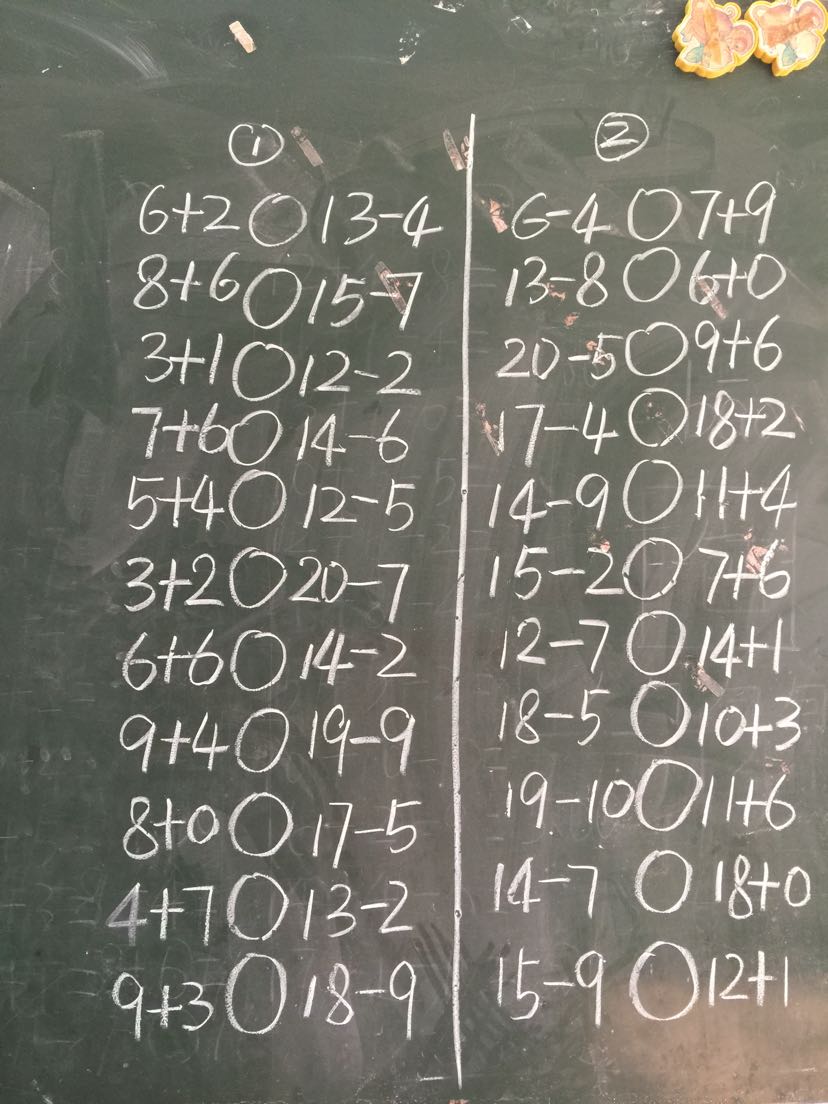 ①
6+2○13-4
8+6○15-7
3+1○12-2
7+6○14-6
5+4○12-5
3+2○20-7
6+6○14-2
9+4○19-9
8+0○17-5
4+7○13-2
9+3○18-9
②
6-4○7+9
13-8○6+0
20-5○9+6
17-4○18+2
14-9○11+4
15-2○7+6
12-7○14+1
18-5○10+3
19-10○11+6
14-7○18+0
15-9○12+1